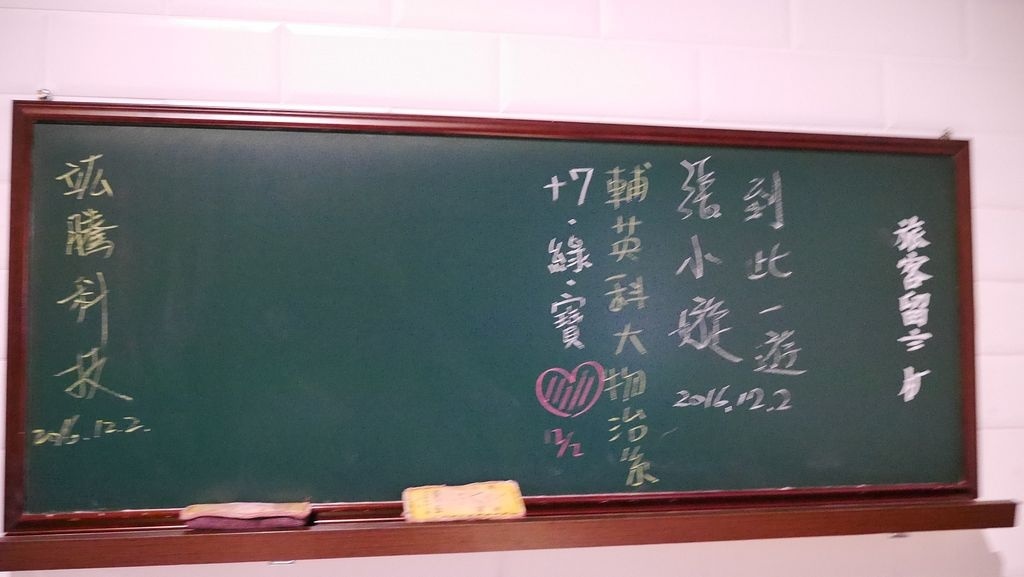 旅客留言
到此一遊
張小璇
2016.12.2
輔英科大物治系
+7.綠.寶
12/2
竑騰科技
2016.12.2.